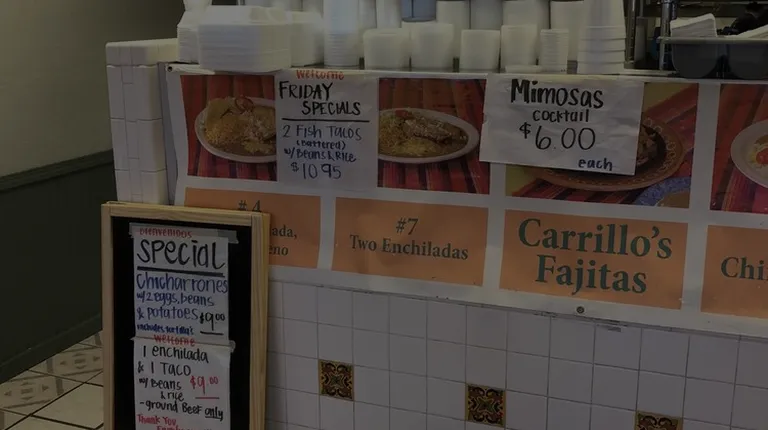 Welcome
FRIDAY
SPECIALS
2 Fish Tacos
(Battered)
w/ Beans & Rice
$10.95
Mimosas
cocktail
$6.00
each
#4
ada,
eno
#7
Two Enchiladas
Carrillo's
Fajitas
Chi
Bienvenidos
SPECIAL
Chicharrones
w/2 eggs, beans
& potatoes $9.00
includes tortilla's
Welcome
1 enchilada
& 1 Taco
w/ Beans $9.00
& rice
-ground Beef only
Thank You